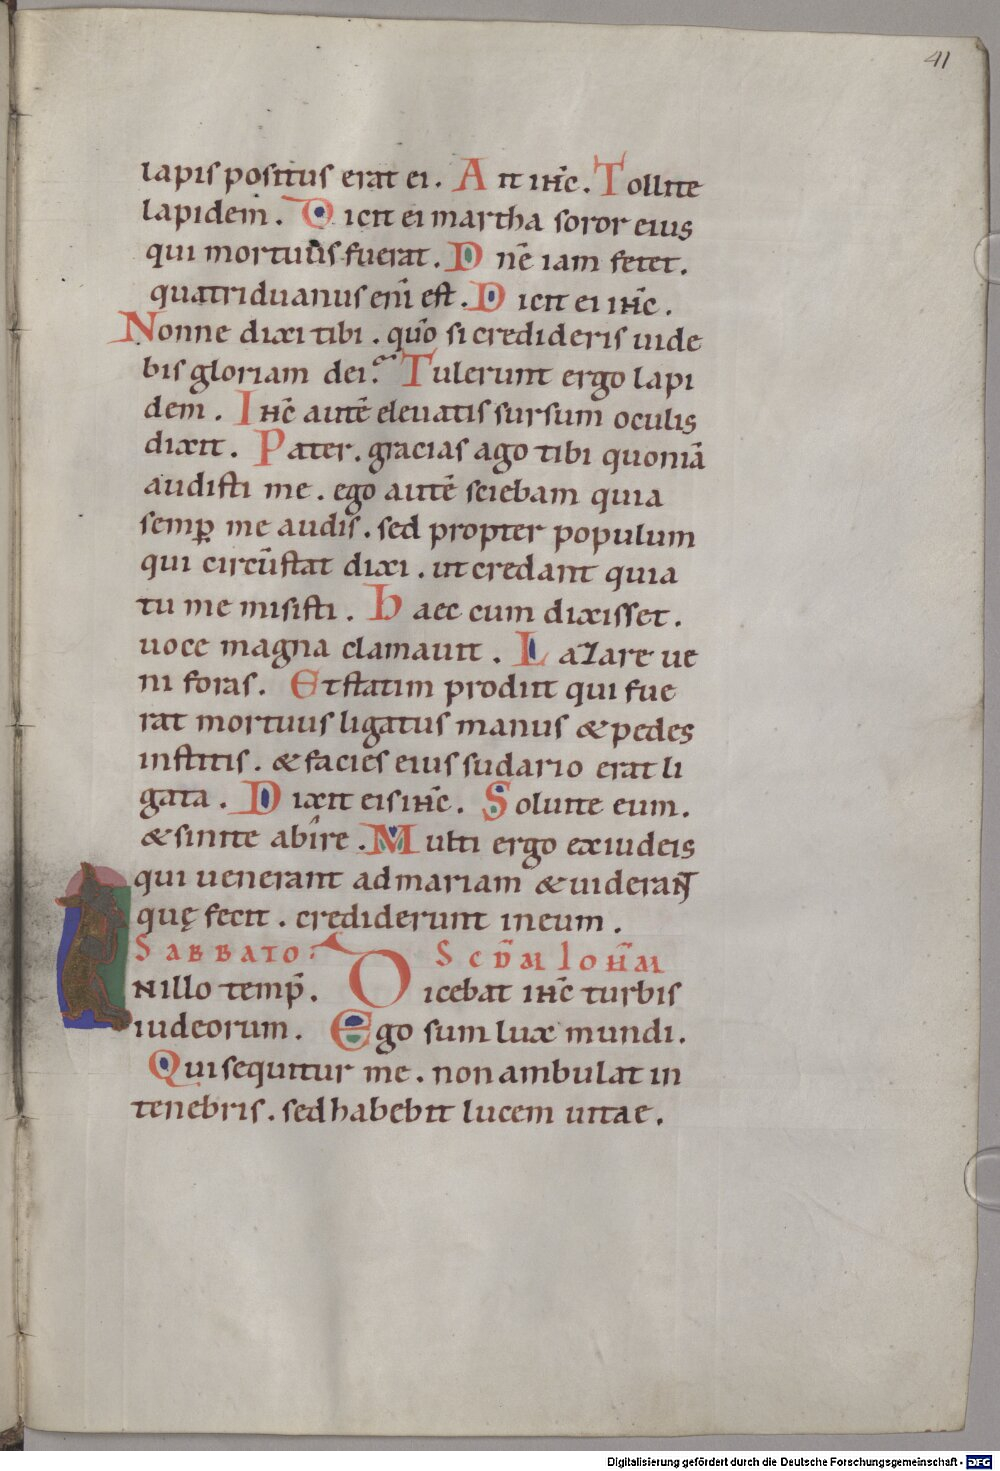 41
lapis positus erat ei. Ait ih̅c. Tollite
lapidem. Dicit ei martha soror eius
qui mortuus fuerat. Dn̅e iam fetet.
quatriduanus eni̅ est. Dicit ei ih̅c.
Nonne dixi tibi. quo̅ si credideris uide
bis gloriam dei? Tulerunt ergo lapi
dem. Ih̅c aute̅ eleuatis sursum oculis
dixit. Pater. gracias ago tibi quonia̅
audisti me. ego aute̅ sciebam quia
semꝑ me audis. sed propter populum
qui circu̅stat dixi. ut credant quia
tu me misisti. Haec cum dixisset.
uoce magna clamauit. Lazare ue
ni foras. Et statim prodiit qui fue
rat mortuus ligatus manus & pedes
institis. & facies eius sudario erat li
gata. Dixit eis ih̅c. Soluite eum.
& sinite abire. Multi ergo ex iudeis
qui uenerant ad mariam & uiderant
quę fecit. crediderunt in eum.
SABBATO. SCD̅M IOH̅M
IN illo temp̅. Dicebat ih̅c turbis
iudeorum. Ego sum lux mundi.
Qui sequitur me. non ambulat in
tenebris. sed habebit lucem uitae.
Digitalisierung gefördert durch die Deutsche Forschungsgemeinschaft - DFG